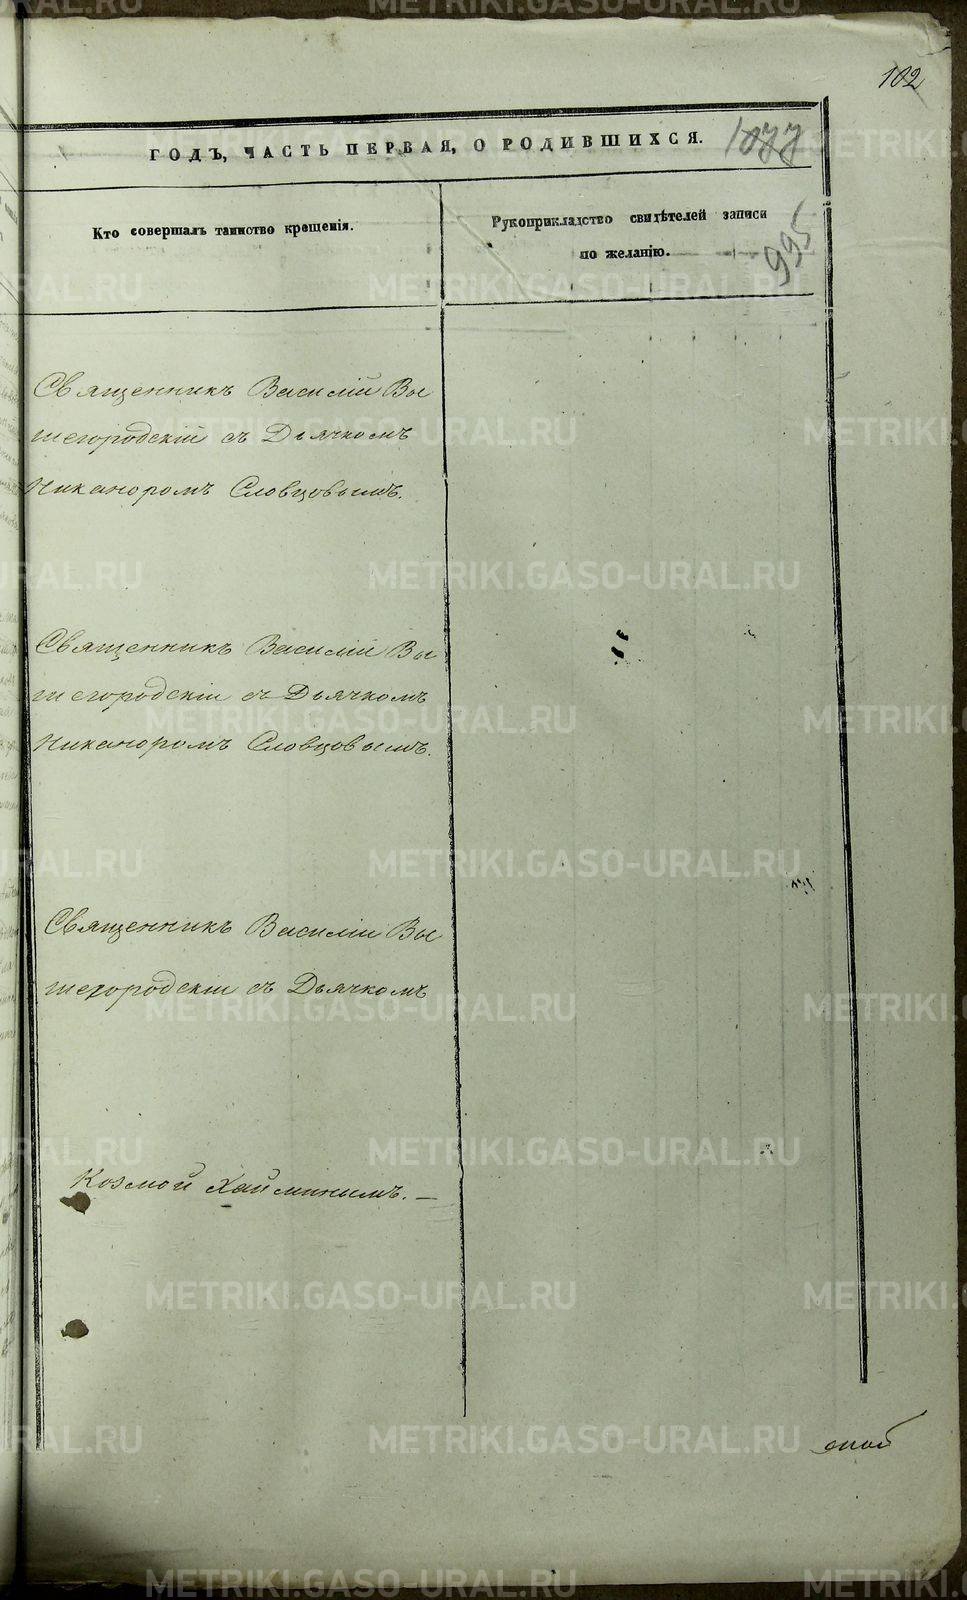 102
ГОДЪ, ЧАСТЬ ПЕРВАЯ, О РОДИВШИХСЯ.
1077
Кто совершалъ таинство крещенія.
Рукоприкладство свидѣтелей записи
по желанію.
995
Священникъ Василій Вы
шегородскій съ Дьячкомъ
Никаноромъ Словцовымъ.
Священникъ Василій Вы
шегородскій съ Дьячкомъ
Никаноромъ Словцовымъ.
Священникъ Василій Вы
шегородскій съ Дьячкомъ
Козмой Хайминымъ.
METRIKI.GASO-URAL.RU